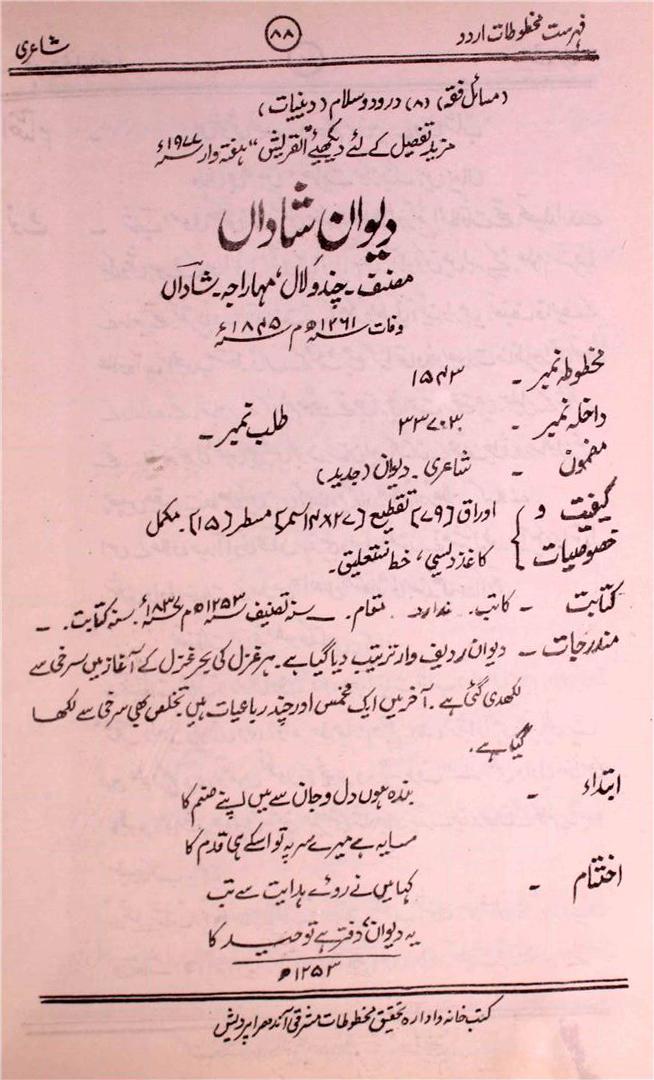 فہرست مخطوطات اردو ۸۸ شاعری
(مسائل فقہ) (۸) درود و سلام (دینیات)
مزید تفصیل کے لئے دیکھیے "القریش" ہفتہ وار ۱۹۷۷ء
دیوان شاداں
مصنف۔ چندو لال، مہاراجہ۔ شاداں
وفات ۱۲۶۱ھ م ۱۸۴۵ء
مخطوطہ نمبر۔ ۱۵۴۳
داخلہ نمبر۔ ۳۳۷۰۳ طلب نمبر۔
مضمون۔ شاعری۔ دیوان (جدید)
کیفیت و } اوراق [۷۹] تقطیع [۲۷×۱۴ سم] مسطر [۱۵]۔ مکمل
خصوصیات } کاغذ دلیسی، خط نستعلیق۔
کتابت۔ کاتب۔ ندارد۔ مقام۔ — سنہ تصنیف ۱۲۵۳ھ م ۱۸۳۷ء۔ سنہ کتابت۔ —
مندرجات۔ دیوان ردیف وار ترتیب دیا گیا ہے۔ ہر غزل کی بحر غزل کے آغاز میں سرخی سے
لکھدی گئی ہے۔ آخر میں ایک مخمس اور چند رباعیات ہیں تخلص بھی سرخی سے لکھا
گیا ہے۔
ابتداء۔ بندہ ہوں دل و جان سے میں اپنے صنم کا
سایہ ہے میرے سر پہ تو اسکے ہی قدم کا
اختتام۔ کہا میں نے روئے ہدایت سے تب
یہ دیوان، دفتر ہے توحید کا
۱۲۵۳ھ
کتب خانہ و ادارہ تحقیق مخطوطات مشرقی آندھرا پردیش